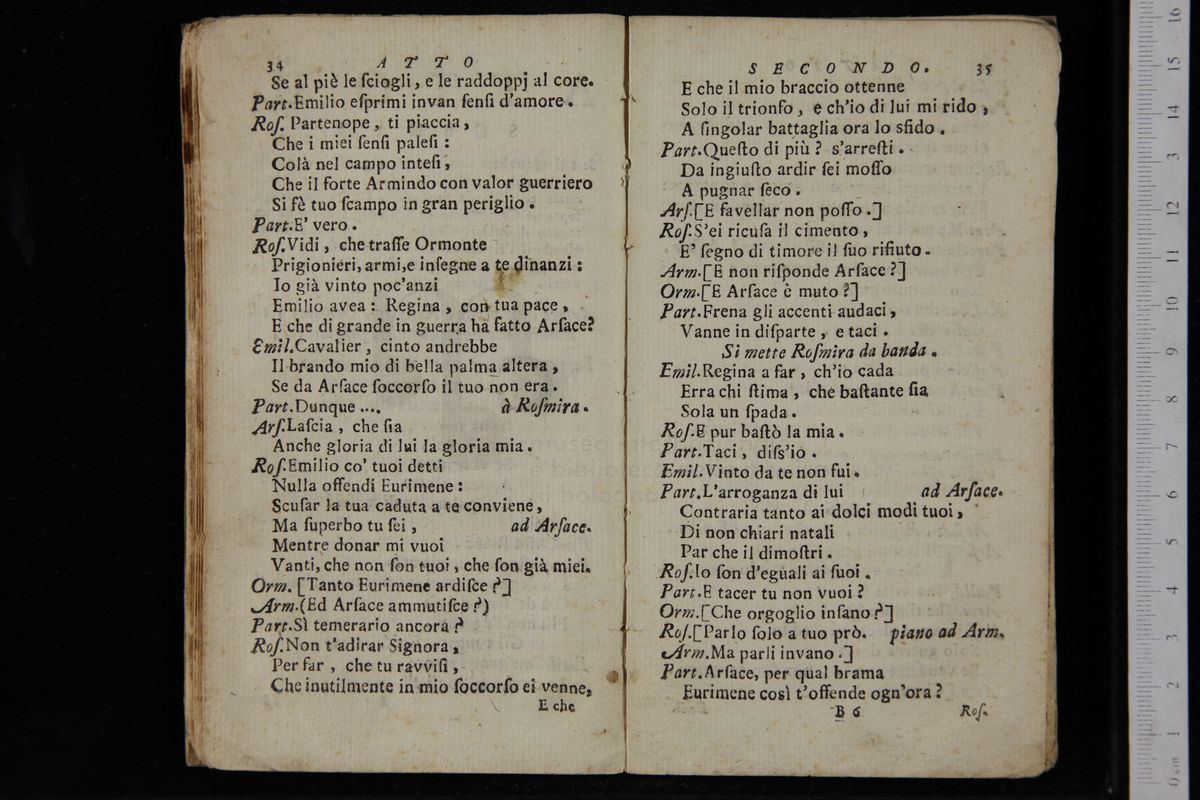 34 ATTO
Se al piè le ſciogli, e le raddoppj al core.
Part.Emilio eſprimi invan ſenſi d'amore.
Roſ. Partenope, ti piaccia,
Che i miei ſenſi paleſi:
Colà nel campo inteſi,
Che il forte Armindo con valor guerriero
Si fè tuo ſcampo in gran periglio.
Part.E' vero.
Roſ.Vidi, che traſſe Ormonte
Prigionieri, armi,e inſegne a te dinanzi:
Io già vinto poc'anzi
Emilio avea: Regina, con tua pace,
E che di grande in guerra ha fatto Arſace?
Emil.Cavalier, cinto andrebbe
Il brando mio di bella palma altera,
Se da Arſace ſoccorſo il tuo non era.
Part.Dunque .... à Roſmira.
Arſ.Laſcia, che ſia
Anche gloria di lui la gloria mia.
Roſ.Emilio co' tuoi detti
Nulla offendi Eurimene:
Scuſar la tua caduta a te conviene,
Ma ſuperbo tu ſei, ad Arſace.
Mentre donar mi vuoi
Vanti, che non ſon tuoi, che ſon già miei.
Orm. [Tanto Eurimene ardiſce?]
Arm.(Ed Arſace ammutiſce?)
Part.Sì temerario ancora?
Roſ.Non t'adirar Signora,
Per far, che tu ravviſi,
Che inutilmente in mio ſoccorſo ei venne,
E che
SECONDO. 35
E che il mio braccio ottenne
Solo il trionfo, e ch'io di lui mi rido,
A ſingolar battaglia ora lo sfido.
Part.Queſto di più? s'arreſti.
Da ingiuſto ardir ſei moſſo
A pugnar ſeco.
Arſ.[E favellar non poſſo.]
Roſ.S'ei ricuſa il cimento,
E' ſegno di timore il ſuo rifiuto.
Arm.[E non riſponde Arſace?]
Orm.[E Arſace è muto?]
Part.Frena gli accenti audaci,
Vanne in diſparte, e taci.
Si mette Roſmira da banda.
Emil.Regina a far, ch'io cada
Erra chi ſtima, che baſtante ſia
Sola un ſpada.
Roſ.E pur baſtò la mia.
Part.Taci, diſs'io.
Emil.Vinto da te non fui.
Part.L'arroganza di lui ad Arſace.
Contraria tanto ai dolci modi tuoi,
Di non chiari natali
Par che il dimoſtri.
Roſ.Io ſon d'eguali ai ſuoi.
Part.E tacer tu non vuoi?
Orm.[Che orgoglio inſano?]
Roſ.[Parlo ſolo a tuo prò. piano ad Arm.
Arm.Ma parli invano.]
Part.Arſace, per qual brama
Eurimene così t'offende ogn'ora?
B 6 Roſ.